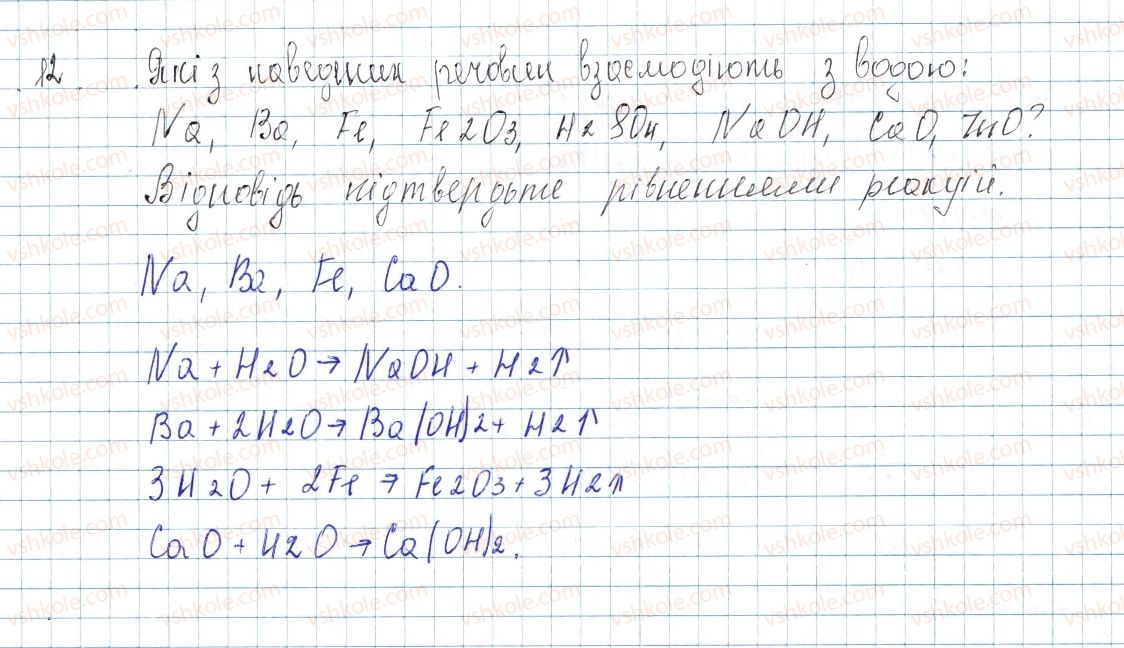 12. Які з наведених речовин взаємодіють з водою:
Na, Ba, Fe, Fe2O3, H2SO4, NaOH, CaO, ZnO?
Відповідь підтвердьте рівняннями реакцій.
Na, Ba, Fe, CaO.
Na + H2O → NaOH + H2↑
Ba + 2H2O → Ba(OH)2 + H2↑
3H2O + 2Fe → Fe2O3 + 3H2↑
CaO + H2O → Ca(OH)2.